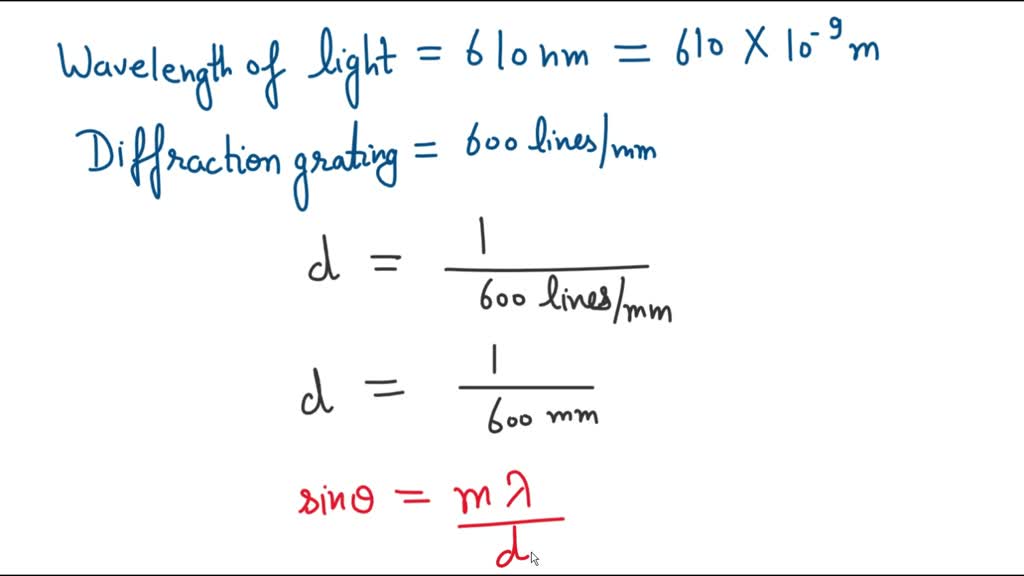 Wavelength of light = 610 nm = 610 X 10⁻⁹ m
Diffraction grating = 600 lines/mm
d = 1 / 600 lines/mm
d = 1 / 600 mm
sinθ = mλ / d